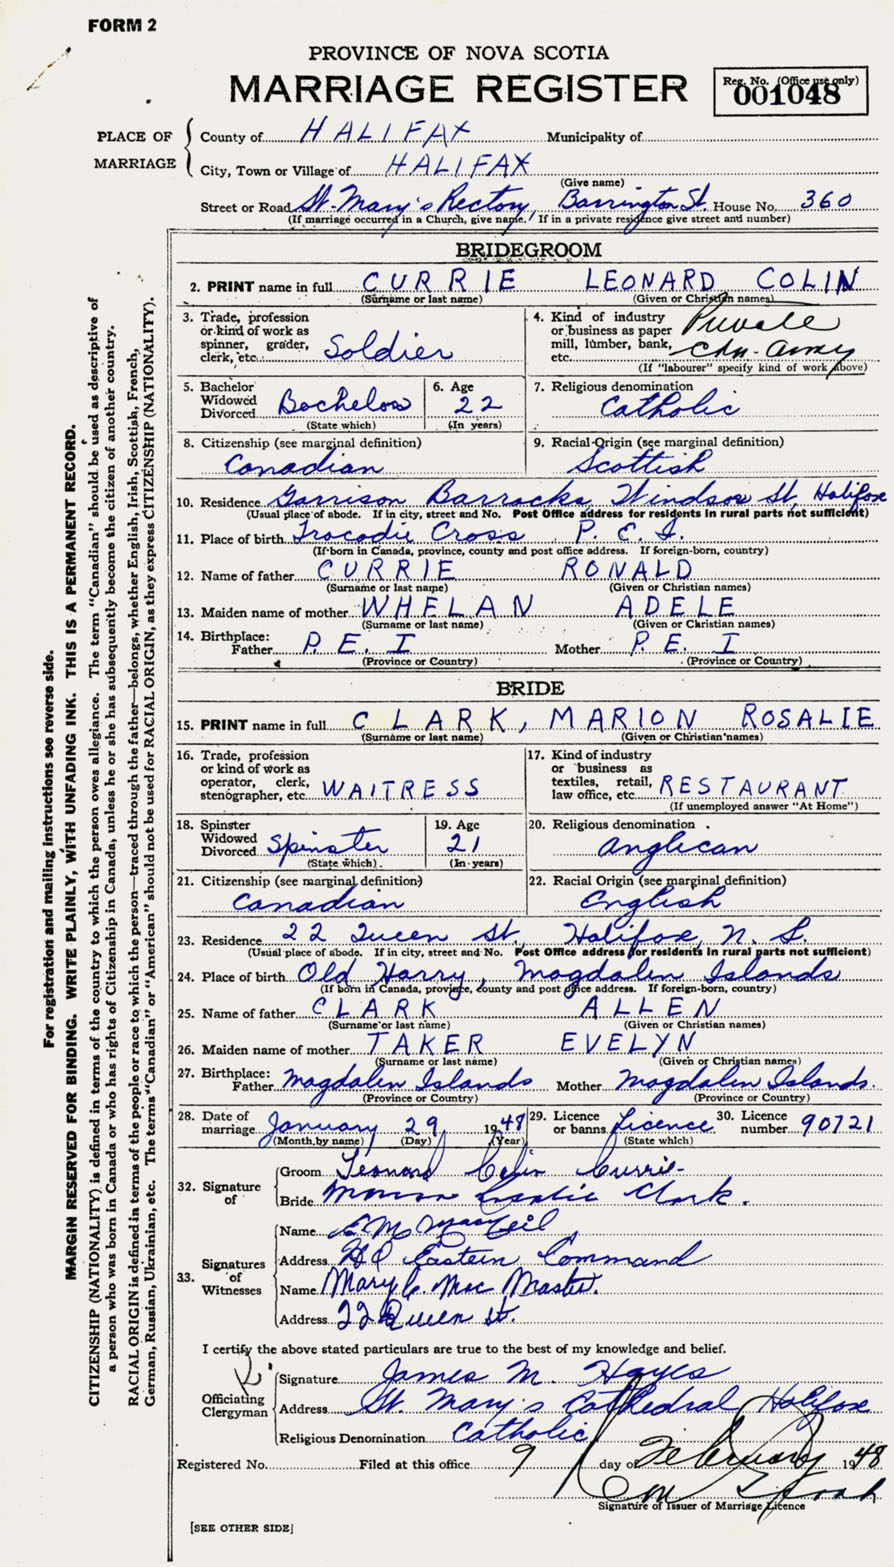 FORM 2
PROVINCE OF NOVA SCOTIA
MARRIAGE REGISTER
Reg. No. (Office use only)
001048
PLACE OF MARRIAGE
County of HALIFAX Municipality of
City, Town or Village of HALIFAX
(Give name)
Street or Road St. Mary's Rectory, Barrington St. House No. 360
(If marriage occurred in a Church, give name. If in a private residence give street and number)
BRIDEGROOM
2. PRINT name in full CURRIE LEONARD COLIN
(Surname or last name) (Given or Christian names)
3. Trade, profession or kind of work as spinner, grader, clerk, etc. Soldier
4. Kind of industry or business as paper mill, lumber, bank, etc. Private Cdn. Army
(If "labourer" specify kind of work above)
5. Bachelor Widowed Divorced Bachelor
(State which)
6. Age 22
(In years)
7. Religious denomination
Catholic
8. Citizenship (see marginal definition)
Canadian
9. Racial Origin (see marginal definition)
Scottish
10. Residence Garrison Barracks Windsor St. Halifax
(Usual place of abode. If in city, street and No. Post Office address for residents in rural parts not sufficient)
11. Place of birth Tracadie Cross P. E. I.
(If born in Canada, province, county and post office address. If foreign-born, country)
12. Name of father CURRIE RONALD
(Surname or last name) (Given or Christian names)
13. Maiden name of mother WHELAN ADELE
(Surname or last name) (Given or Christian names)
14. Birthplace:
Father P. E. I Mother P. E. I
(Province or Country) (Province or Country)
BRIDE
15. PRINT name in full CLARK, MARION ROSALIE
(Surname or last name) (Given or Christian names)
16. Trade, profession or kind of work as operator, clerk, stenographer, etc. WAITRESS
17. Kind of industry or business as textiles, retail, law office, etc. RESTAURANT
(If unemployed answer "At Home")
18. Spinster Widowed Divorced Spinster
(State which)
19. Age 21
(In years)
20. Religious denomination
Anglican
21. Citizenship (see marginal definition)
Canadian
22. Racial Origin (see marginal definition)
English
23. Residence 22 Queen St. Halifax, N. S.
(Usual place of abode. If in city, street and No. Post Office address for residents in rural parts not sufficient)
24. Place of birth Old Harry, Magdalen Islands
(If born in Canada, province, county and post office address. If foreign-born, country)
25. Name of father CLARK ALLEN
(Surname or last name) (Given or Christian names)
26. Maiden name of mother TAKER EVELYN
(Surname or last name) (Given or Christian names)
27. Birthplace:
Father Magdalen Islands Mother Magdalen Islands.
(Province or Country) (Province or Country)
28. Date of marriage January 29 1948
(Month by name) (Day) (Year)
29. Licence or banns Licence
(State which)
30. Licence number 90721
32. Signature of
Groom Leonard Colin Currie
Bride Marion Rosalie Clark.
33. Signatures of Witnesses
Name E M MacNeil
Address HQ Eastern Command
Name Mary C. MacMaster.
Address 22 Queen St.
I certify the above stated particulars are true to the best of my knowledge and belief.
Officiating Clergyman
Signature James M. Hayes
Address St. Mary's Cathedral Halifax
Religious Denomination Catholic
Registered No. Filed at this office 9 day of February 1948
Signature of Issuer of Marriage Licence
[SEE OTHER SIDE]
For registration and mailing instructions see reverse side.
MARGIN RESERVED FOR BINDING. WRITE PLAINLY, WITH UNFADING INK. THIS IS A PERMANENT RECORD.
CITIZENSHIP (NATIONALITY) is defined in terms of the country to which the person owes allegiance. The term "Canadian" should be used as descriptive of
a person who was born in Canada or who has rights of Citizenship in Canada, unless he or she has subsequently become the citizen of another country.
RACIAL ORIGIN is defined in terms of the people or race to which the person—traced through the father—belongs, whether English, Irish, Scottish, French,
German, Russian, Ukrainian, etc. The terms "Canadian" or "American" should not be used for RACIAL ORIGIN, as they express CITIZENSHIP (NATIONALITY).